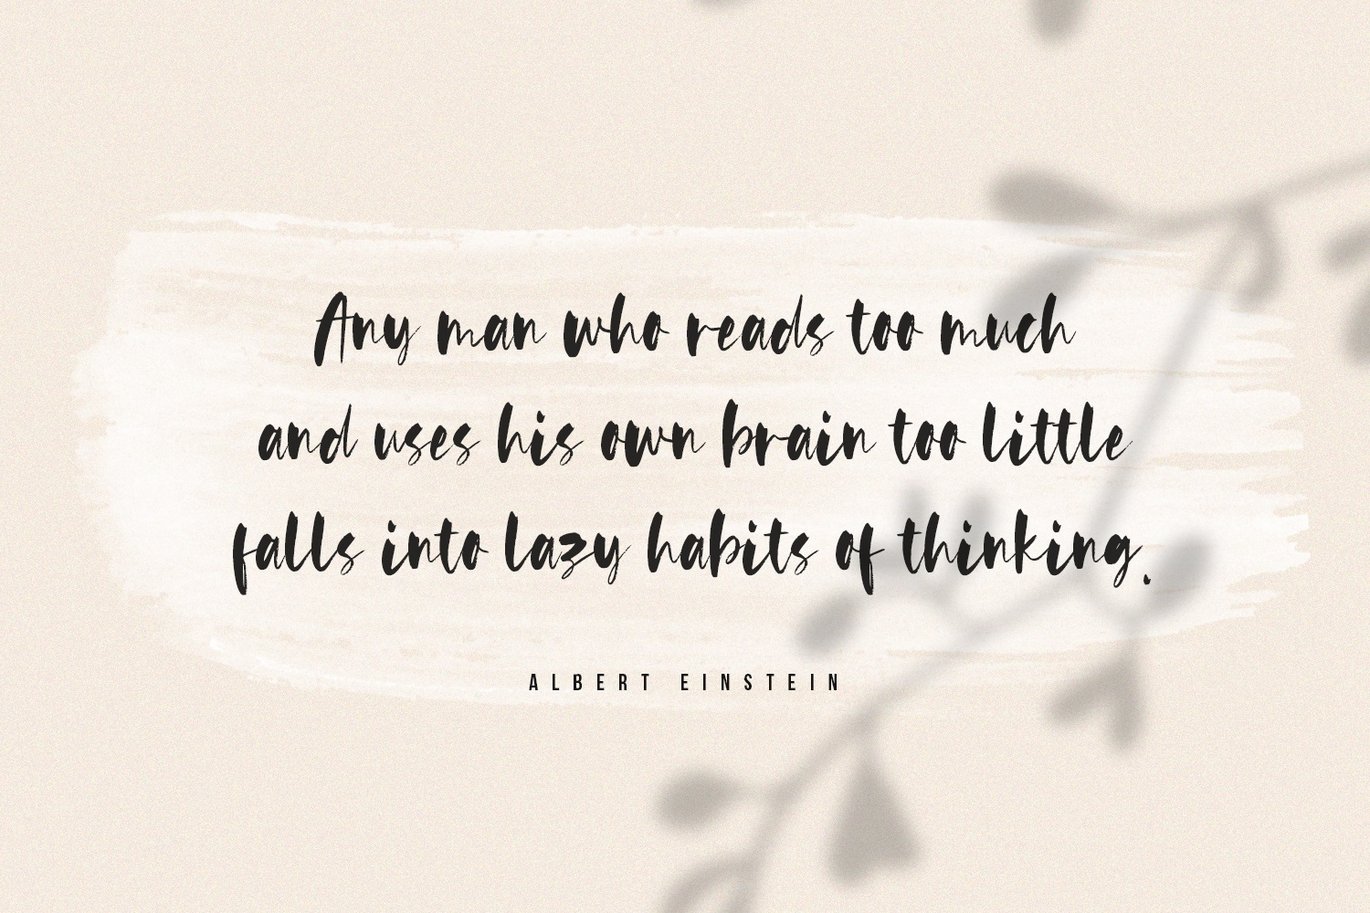 Any man who reads too much
and uses his own brain too little
falls into lazy habits of thinking.
ALBERT EINSTEIN